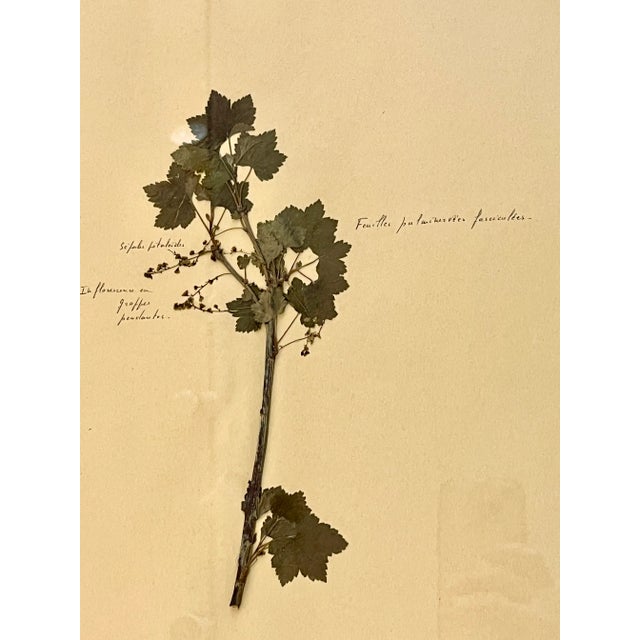 Feuilles palminervées fasciculées.
Sépales pétaloïdes
Inflorescence en
grappes
pendantes.